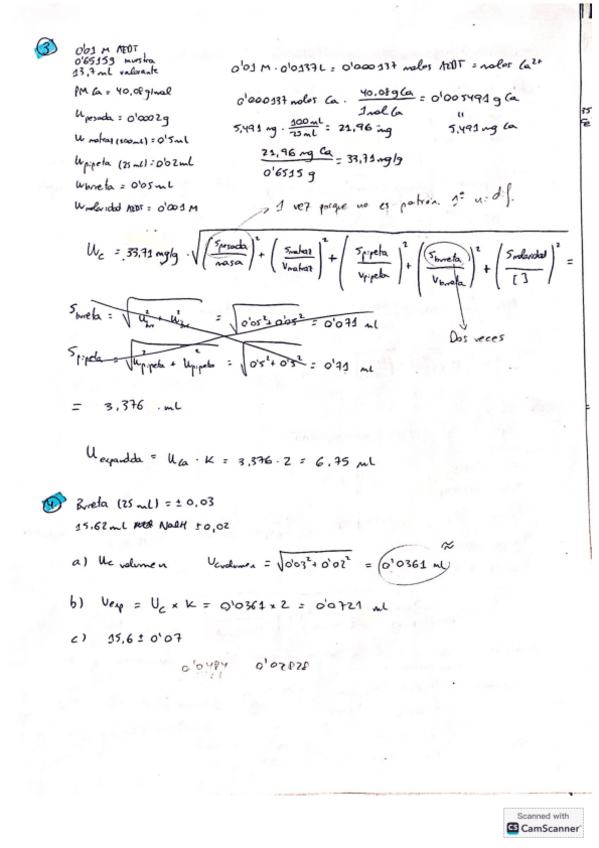 3
0'01 M AEDT
0'6515g muestra
13,7 ml valorante
PM Ca = 40,08 g/mol
U pesada = 0'0002g
U matraz (100ml) = 0'5ml
U pipeta (25 ml) = 0'02ml
U bureta = 0'05ml
U molaridad AEDT = 0'001 M
0'01 M · 0'0137L = 0'000137 moles AEDT = moles Ca2+
0'000137 moles Ca · 40,08 g Ca / 1 mol Ca = 0'005491 g Ca
"
5,491 mg Ca
5,491 mg · 100ml / 25ml = 21,96 mg
21,96 mg Ca / 0'6515 g = 33,71 mg/g
1 vez porque no es patrón 1º u: dif.
Uc = 33,71 mg/g · √(Spesada/masa)² + (Smatraz/Vmatraz)² + (Spipeta/Vpipeta)² + (Sbureta/Vbureta)² + (Smolaridad/[ ])² =
Dos veces
Sbureta = √U²bur + U²bur = √0'05² + 0'05² = 0'071 ml
Spipeta = √U²pipeta + U²pipeta = √0'5² + 0'5² = 0'71 ml
= 3,376 . ml
Uexpandida = Uca · K = 3,376 · 2 = 6,75 ml
4.
Bureta (25 ml) = ± 0,03
15.62ml NaOH ± 0,02
a) Uc volumen Ucvolumen = √0'03² + 0'02² = 0'0361 ml ≈
b) Uexp = Uc x K = 0'0361 x 2 = 0'0721 ml
c) 15,6 ± 0'07
0'0484 0'02828
Scanned with
CS CamScanner